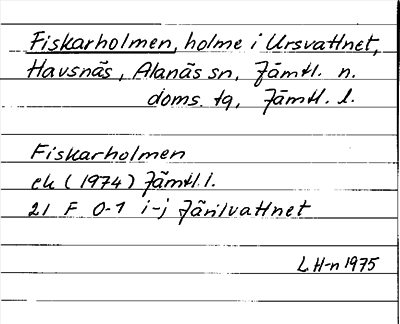 Fiskarholmen, holme i Ursvattnet,
Havsnäs, Alanäs sn, Jämtl. n.
doms. tg, Jämtl. l.
Fiskarholmen
ek (1974) Jämtl. l.
21 F 0-1 i-j Järilvattnet
L H-n 1975